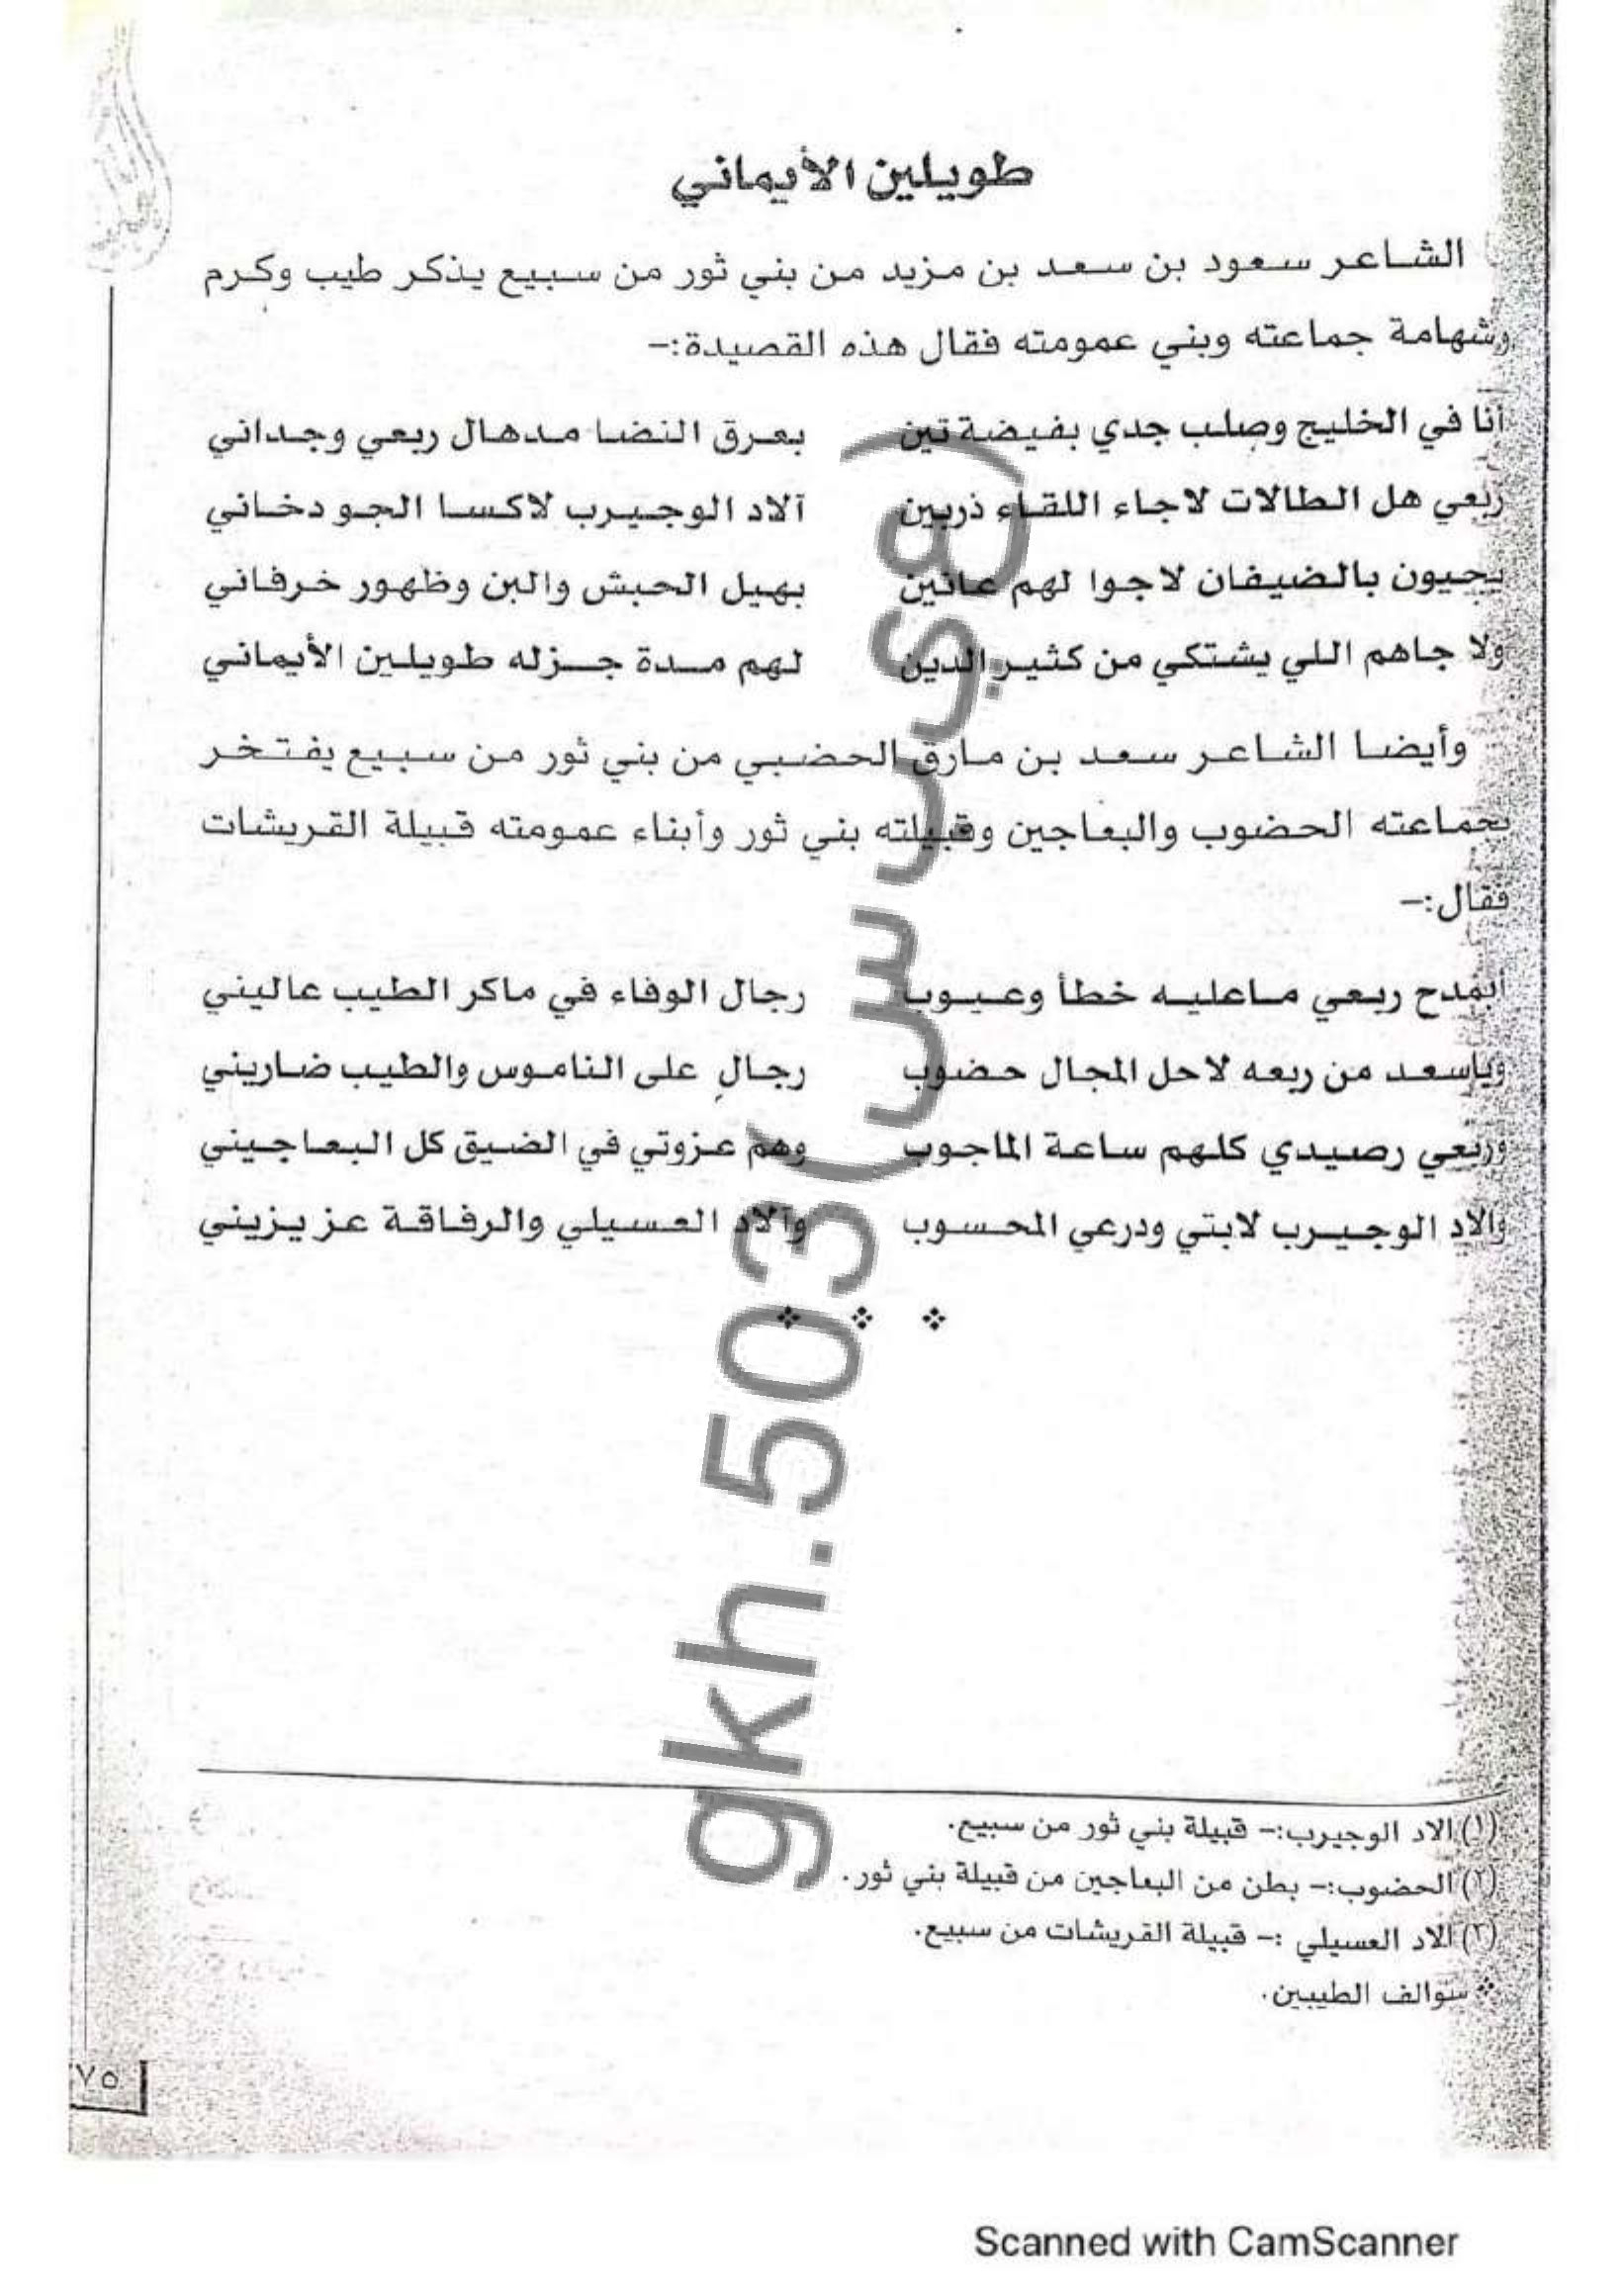 طويلين الأيماني
الشاعر سعود بن سعد بن مزيد من بني ثور من سبيع يذكر طيب وكرم
وشهامة جماعته وبني عمومته فقال هذه القصيدة:-
أنا في الخليج وصلب جدي بفيضة تين بعرق النضا مدهال ربعي وجداني
ربعي هل الطالات لاجاء اللقاء ذربين آلاد الوجيرب لاكسا الجو دخاني
يحيون بالضيفان لاجوا لهم عانين بهيل الحبش والبن وظهور خرفاني
ولا جاهم اللي يشتكي من كثير الدين لهم مدة جزله طويلين الأيماني
وأيضا الشاعر سعد بن مارق الحضبي من بني ثور من سبيع يفتخر
بجماعته الحضوب والبعاجين وقبيلته بني ثور وأبناء عمومته قبيلة القريشات
فقال:-
ابمدح ربعي ماعليه خطأ وعيوب رجال الوفاء في ماكر الطيب عاليني
وياسعد من ربعه لاحل المجال حضوب رجالٍ على الناموس والطيب ضاريني
وربعي رصيدي كلهم ساعة الماجوب وهم عزوتي في الضيق كل البعاجيني
والاد الوجيرب لابتي ودرعي المحسوب وآلاد العسيلي والرفاقة عزيزيني
(١) الاد الوجيرب:- قبيلة بني ثور من سبيع.
(٢) الحضوب:- بطن من البعاجين من قبيلة بني ثور.
(٣) آلاد العسيلي :- قبيلة القريشات من سبيع.
سوالف الطيبين.
٧٥
gkh.503
Scanned with CamScanner